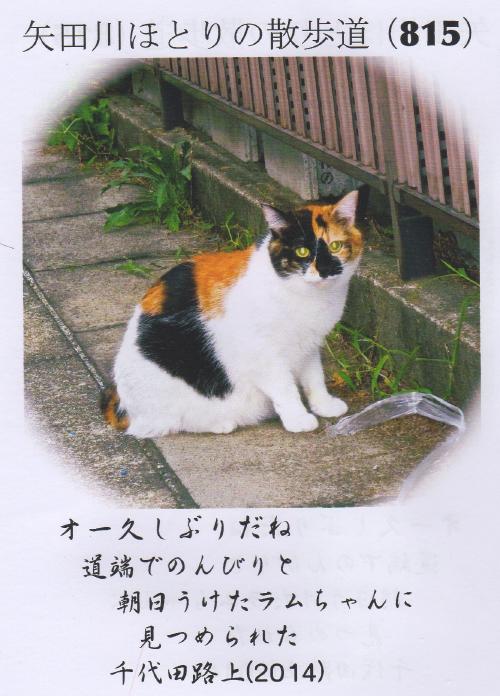 矢田川ほとりの散歩道 (815)
オー久しぶりだね
道端でのんびりと
朝日うけたラムちゃんに
見つめられた
千代田路上(2014)